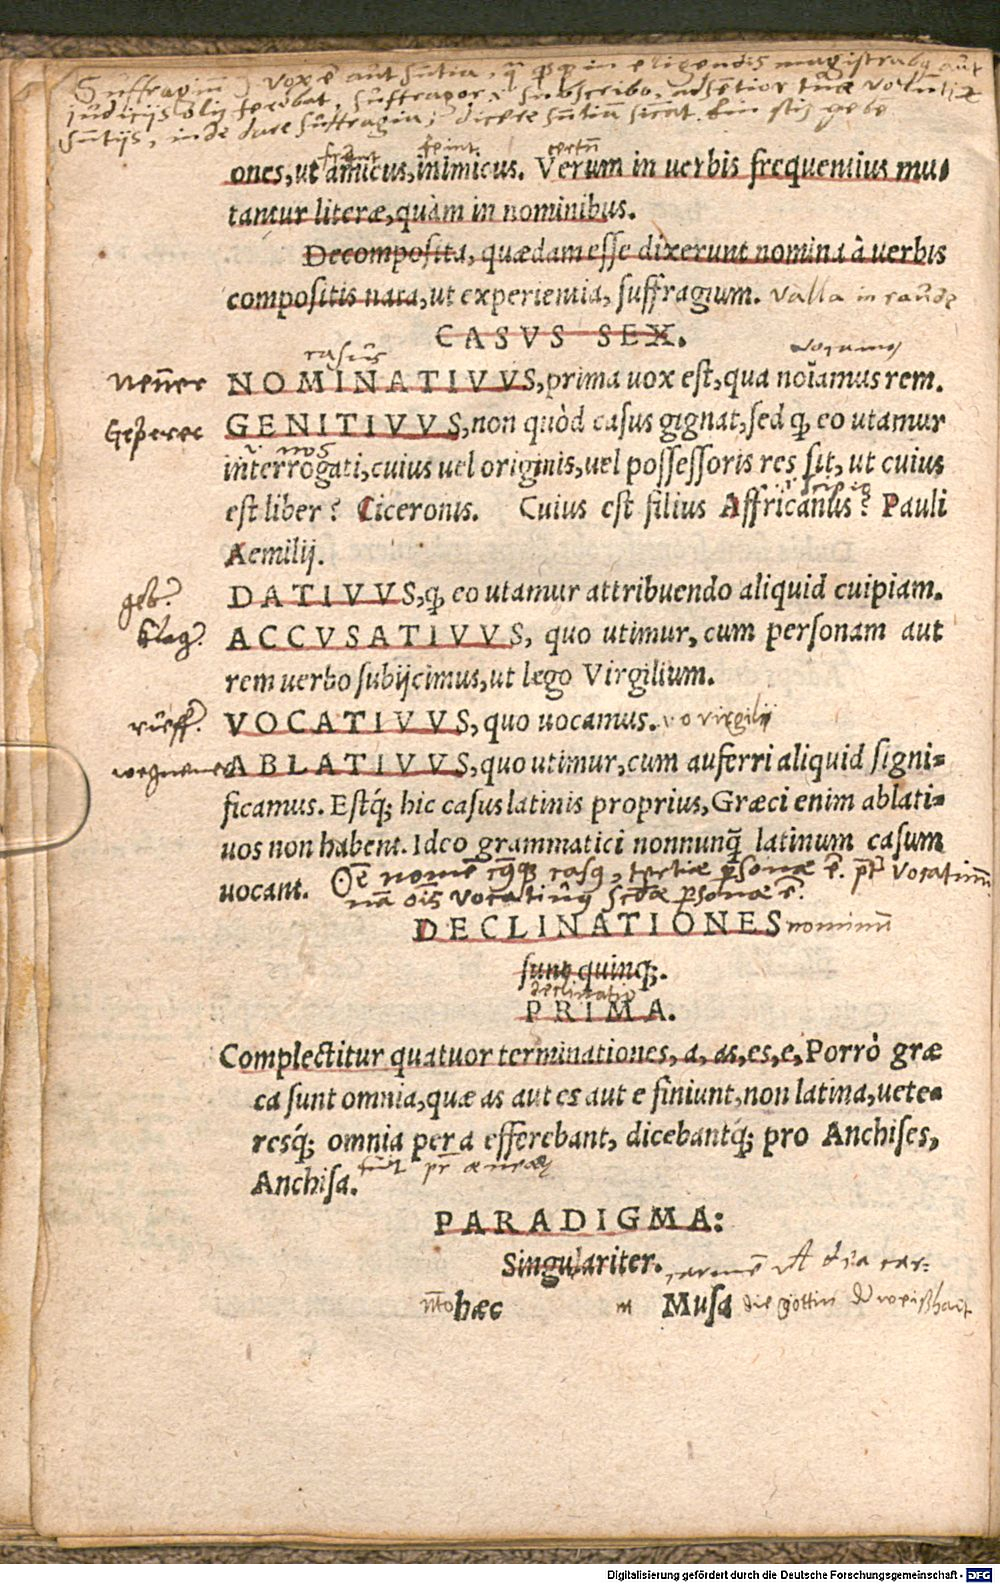 Suffragiũ vox ẽ aut sñtia, in eligendis magistratibꝰ aut
judicijs olĩ ferebat, suffragor, subscribo, adsentior tuæ volũtati
sñtijs, inde dare suffragia, dicere sñtiã
frẽnt feint
ones, ut amicus, inimicus. Verum in uerbis frequentius mu-
tantur literæ, quàm in nominibus.
Decomposita, quædam esse dixerunt nomina à uerbis
compositis nata, ut experientia, suffragium. Valla in
CASVS SEX.
casus
Nenner NOMINATIVVS, prima uox est, qua noĩamus rem.
GENITIVVS, non quòd casus gignat, sed ꝙ eo utamur
interrogati, cuius uel originis, uel possessoris res sit, ut cuius
est liber? Ciceronis. Cuius est filius Affricanus? Pauli
Aemilij.
geb. DATIVVS, ꝙ eo utamur attribuendo aliquid cuipiam.
klag. ACCVSATIVVS, quo utimur, cum personam aut
rem uerbo subijcimus, ut lego Virgilium.
rueff. VOCATIVVS, quo uocamus. vo virgilij
ABLATIVVS, quo utimur, cum auferri aliquid signi-
ficamus. Estq́; hic casus latinis proprius, Græci enim ablati-
uos non habent. Ideo grammatici nonnunq̃ latinum casum
uocant. Oẽ nomẽ casꝰ, tertiæ p̃sonæ ẽ. pt̃ Vocatiuũ
nã oĩs vocatiuꝰ scdæ p̃sonæ ẽ.
DECLINATIONES nominũ
sunt quinq;.
declinatio
PRIMA.
Complectitur quatuor terminationes, a, as, es, e, Porrò græ
ca sunt omnia, quæ as aut es aut e finiunt, non latina, uete-
resq́; omnia per a efferebant, dicebantq́; pro Anchises,
Anchisa.
PARADIGMA:
Singulariter.
nto hæc m Musa die göttin d weißhait
Digitalisierung gefördert durch die Deutsche Forschungsgemeinschaft - DFG